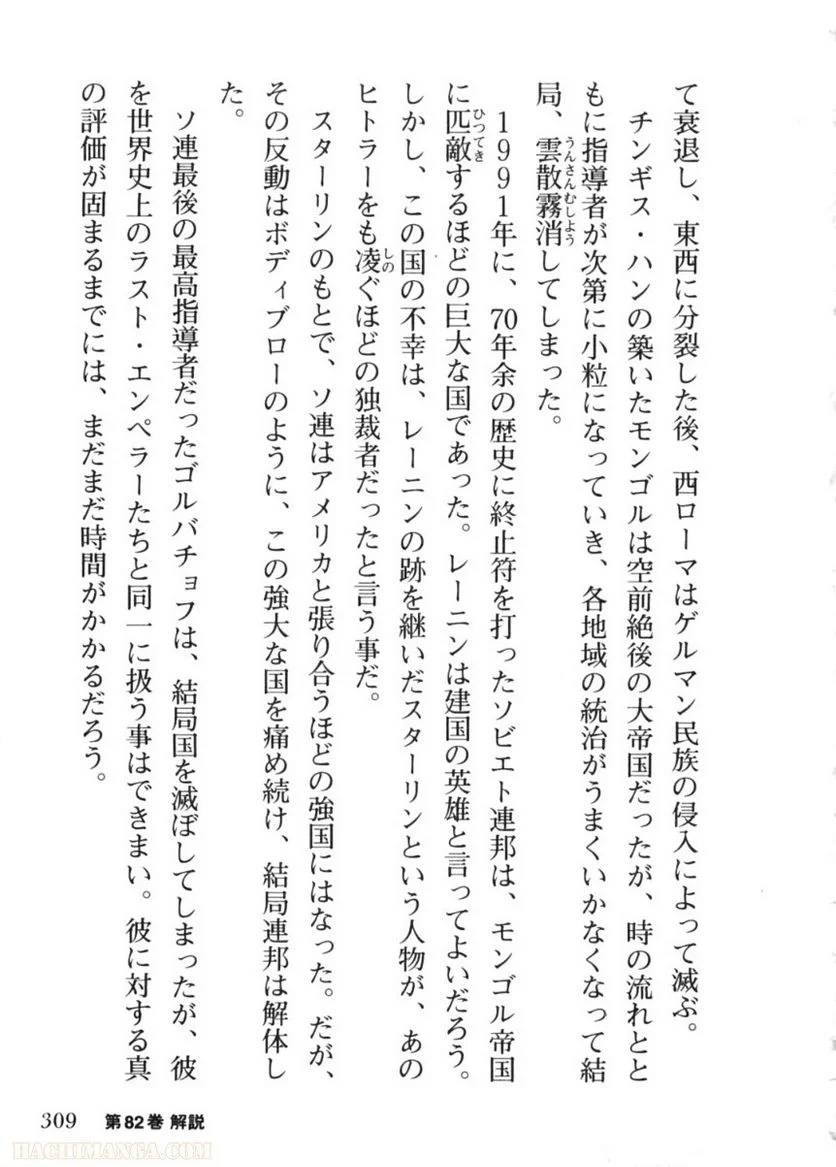 て衰退し、東西に分裂した後、西ローマはゲルマン民族の侵入によって滅ぶ。
チンギス・ハンの築いたモンゴルは空前絶後の大帝国だったが、時の流れとと
もに指導者が次第に小粒になっていき、各地域の統治がうまくいかなくなって結
局、雲散霧消してしまった。
うんさんむしよう
1991年に、70年余の歴史に終止符を打ったソビエト連邦は、モンゴル帝国
に匹敵するほどの巨大な国であった。レーニンは建国の英雄と言ってよいだろう。
ひつてき
しかし、この国の不幸は、レーニンの跡を継いだスターリンという人物が、あの
ヒトラーをも凌ぐほどの独裁者だったと言う事だ。
しの
スターリンのもとで、ソ連はアメリカと張り合うほどの強国にはなった。だが、
その反動はボディブローのように、この強大な国を痛め続け、結局連邦は解体し
た。
ソ連最後の最高指導者だったゴルバチョフは、結局国を滅ぼしてしまったが、彼
を世界史上のラスト・エンペラーたちと同一に扱う事はできまい。彼に対する真
の評価が固まるまでには、まだまだ時間がかかるだろう。
309 第82巻 解説
HACHIMANGA.COM